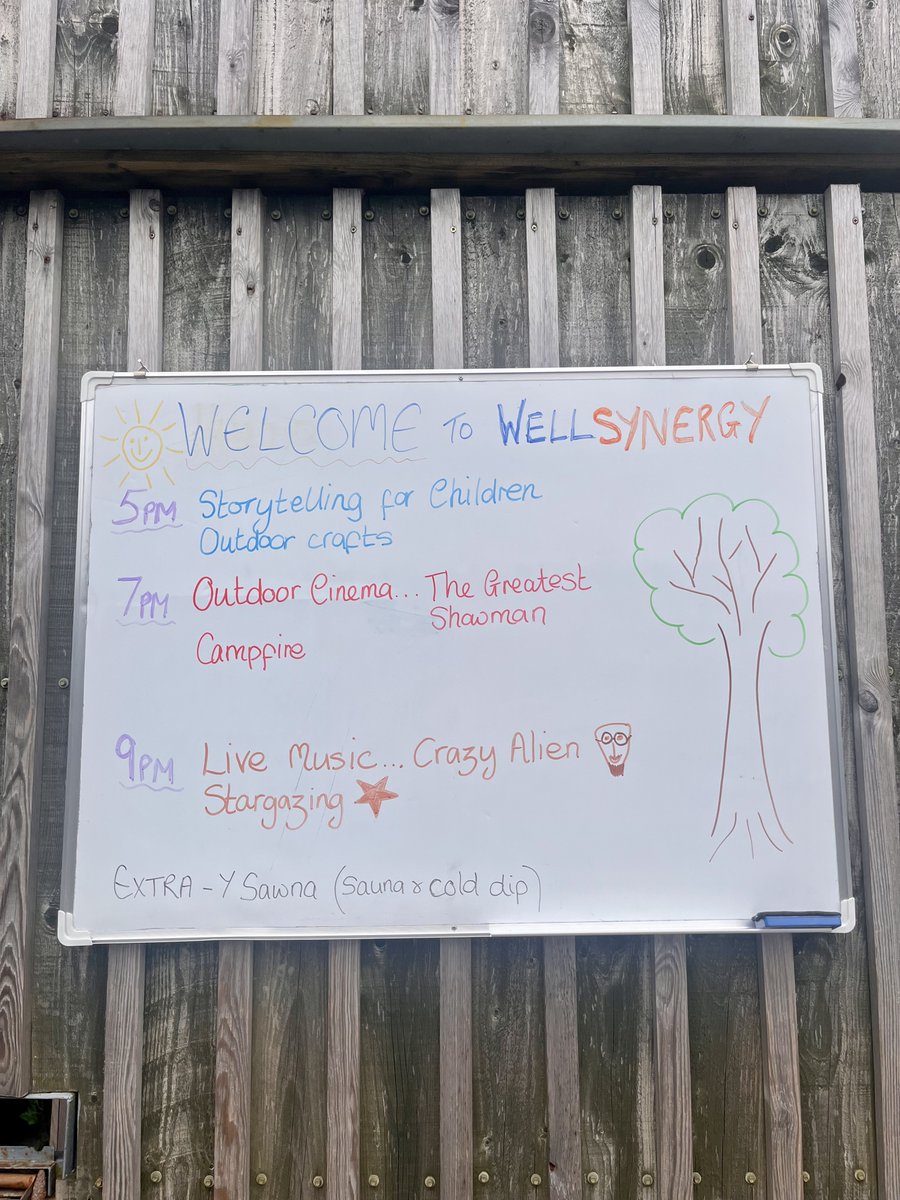 WELCOME TO WELLSYNERGY
5PM Storytelling for Children
Outdoor crafts
7PM Outdoor Cinema... The Greatest
Showman
Campfire
9PM Live Music... Crazy Alien
Stargazing
EXTRA - Y Sawna (Sauna & cold dip)